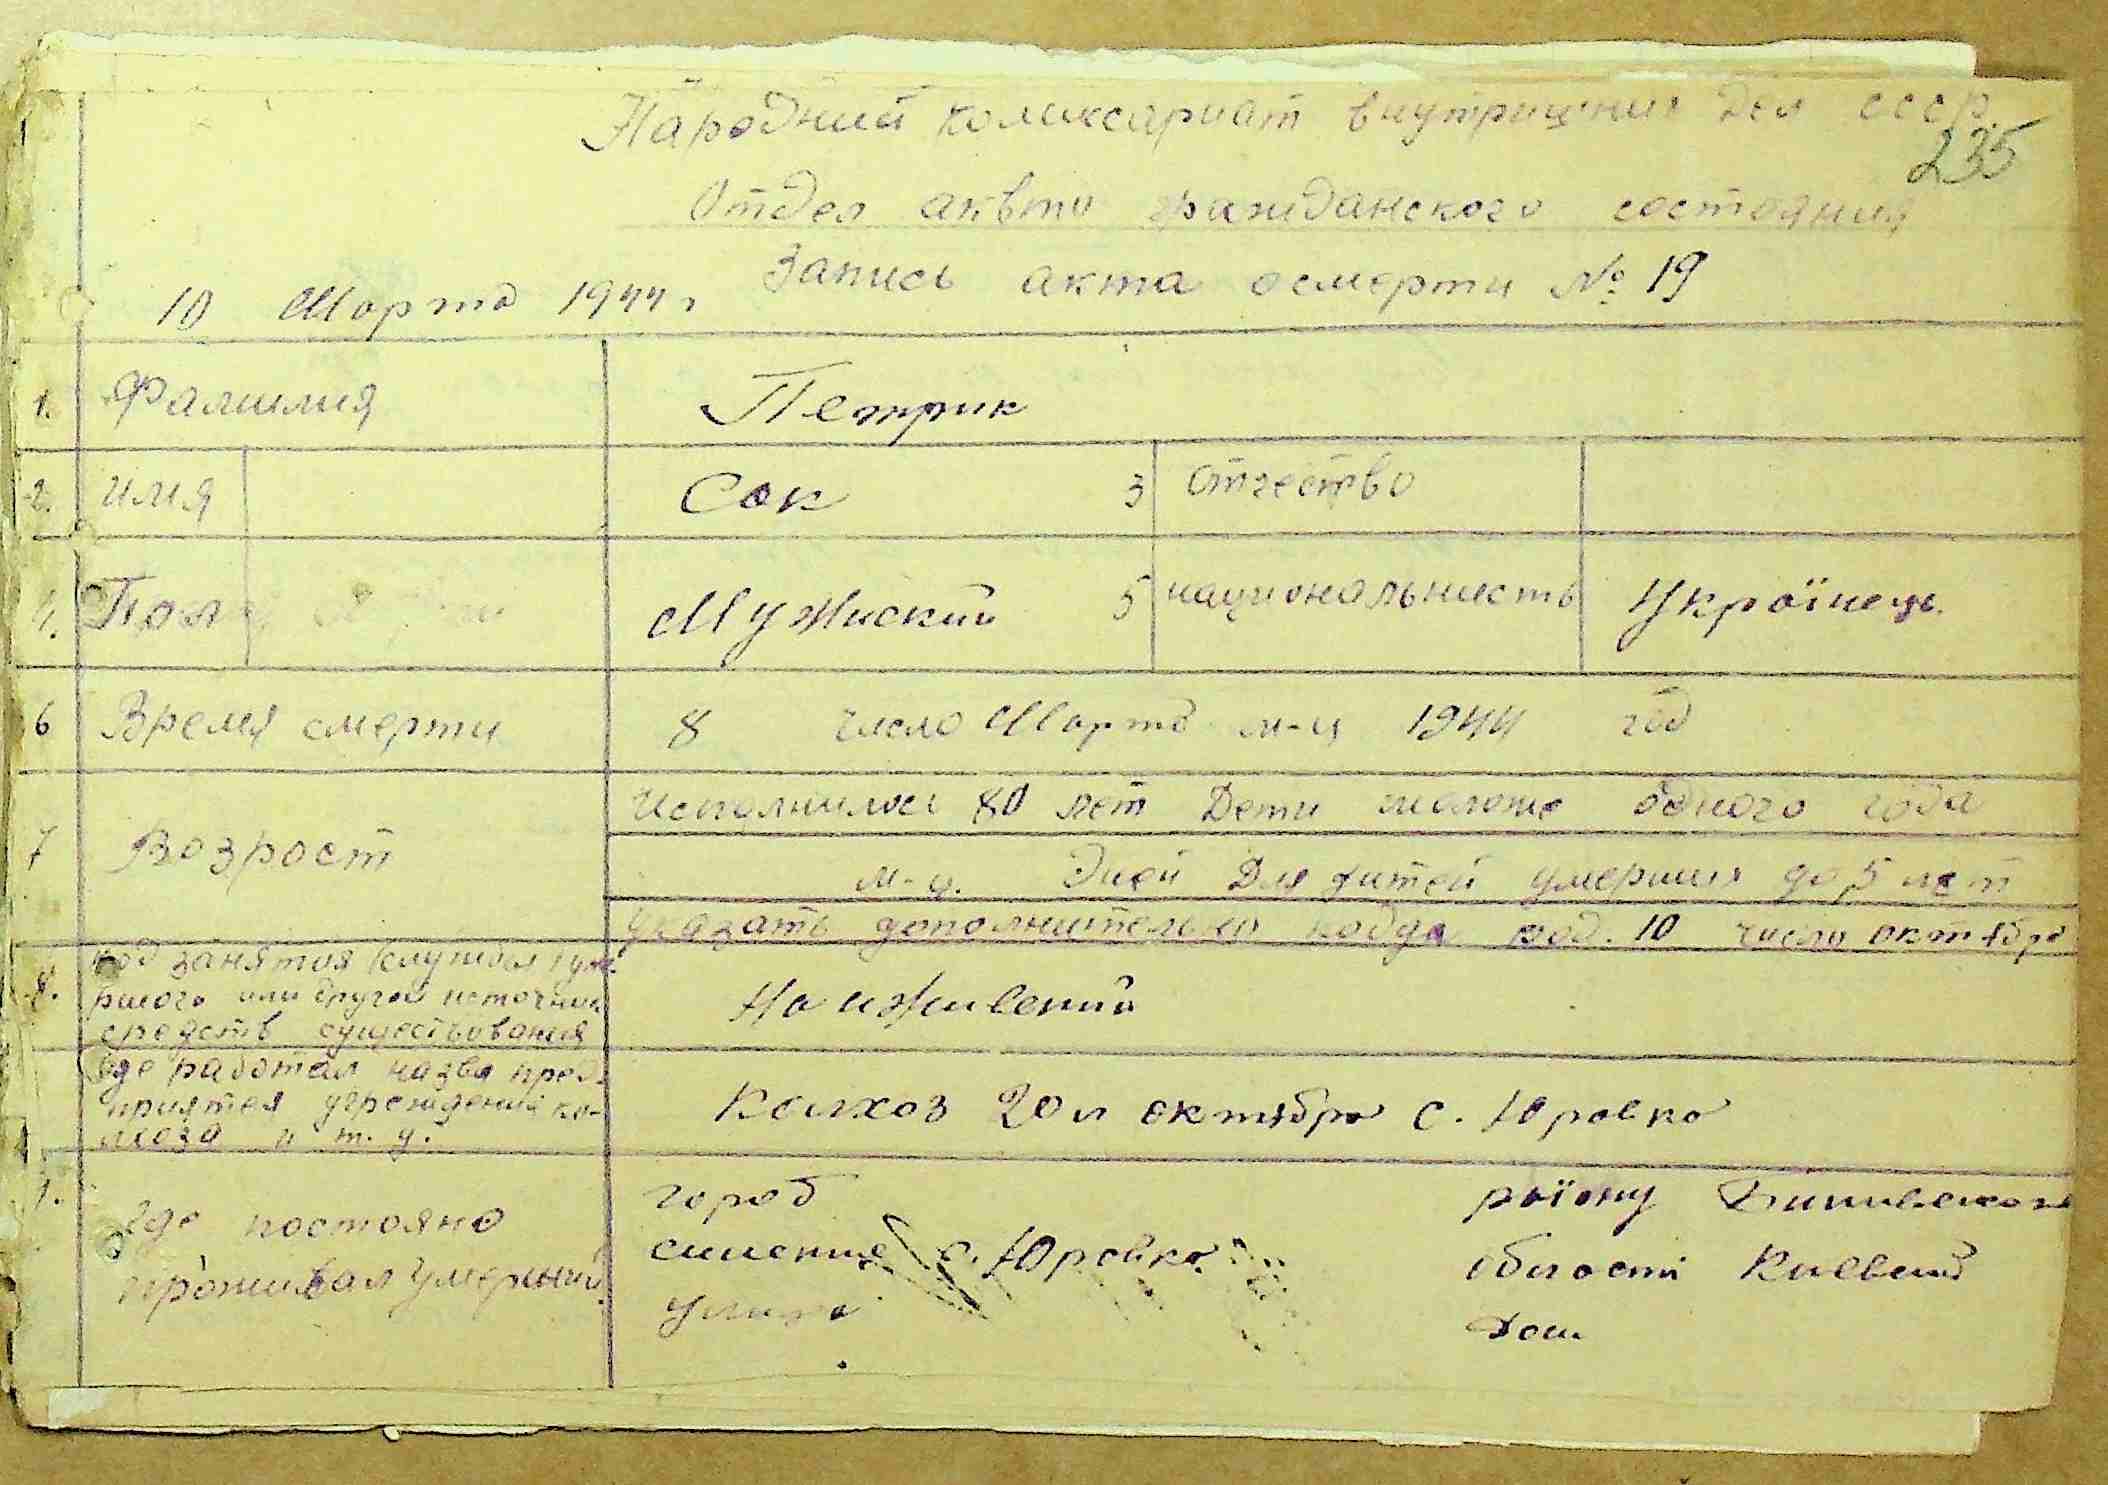 Народний комиссариат внутрицких дел СССР.
235
Отдел аквто гражданского состояния
Запись акта осмерти № 19
10 Марта 1944 г
1. Фамилия Петрик
2. имя Сак 3 отчество
4. Пол Мужиский 5 национальность Українець.
6 Время смерти 8 число Марта м-ц 1944 год
7 Возрост Исполнилось 80 лет Дети моложе одного года
м-ц. дней Для дитей умерших до 5 лет
указать дополнительно когда род. 10 число октября
8. род занятия (службы) уме-
ршого или другой источник
средств существования
На иживений
где работал назва пред-
приятея учреждения ко-
лхоза и т. д.
Колхоз 20 л октября с. Юровка
9. где постояно
проживал умерший.
город району
селение с. Юровка. області Киевский
улица дом